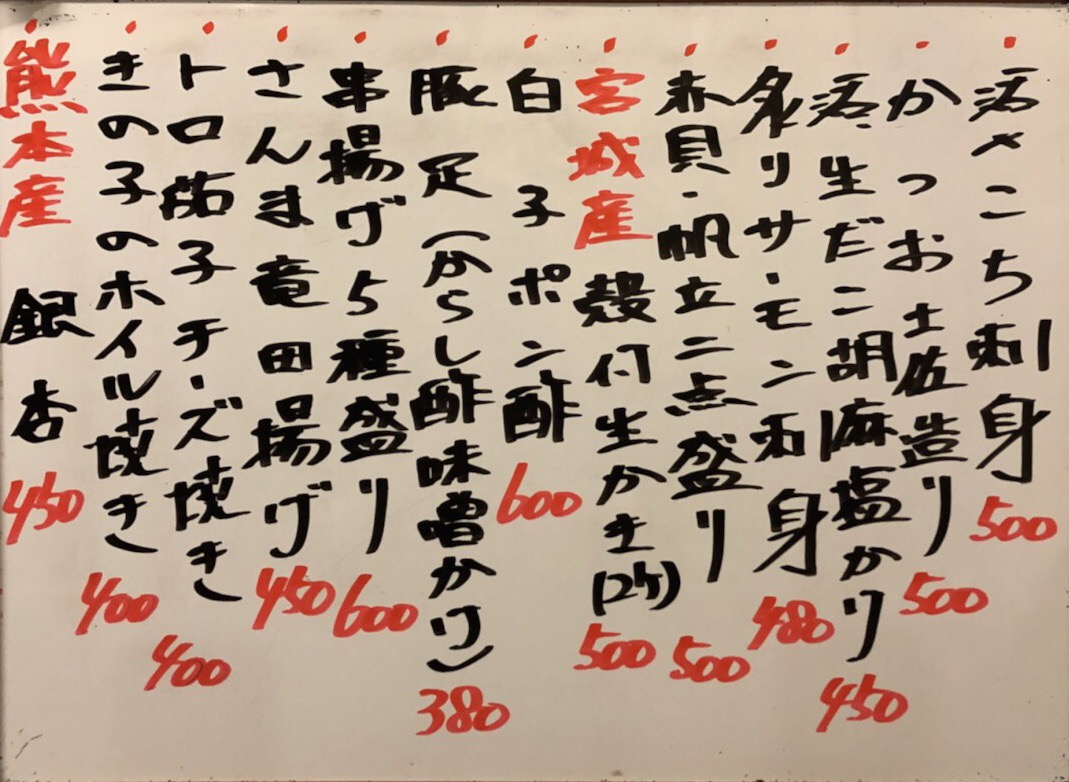 活〆こち刺身 500
かつお土佐造り 500
活生だこ胡麻塩かけ 450
炙りサーモン刺身 480
赤貝・帆立二点盛り 500
宮城産 殻付生かき(2ケ) 500
白子ポン酢 600
豚足(からし酢味噌かけ) 380
串揚げ5種盛り 600
さんま竜田揚げ 450
トロ茄子チーズ焼き 400
きの子のホイル焼き 400
熊本産 銀杏 450